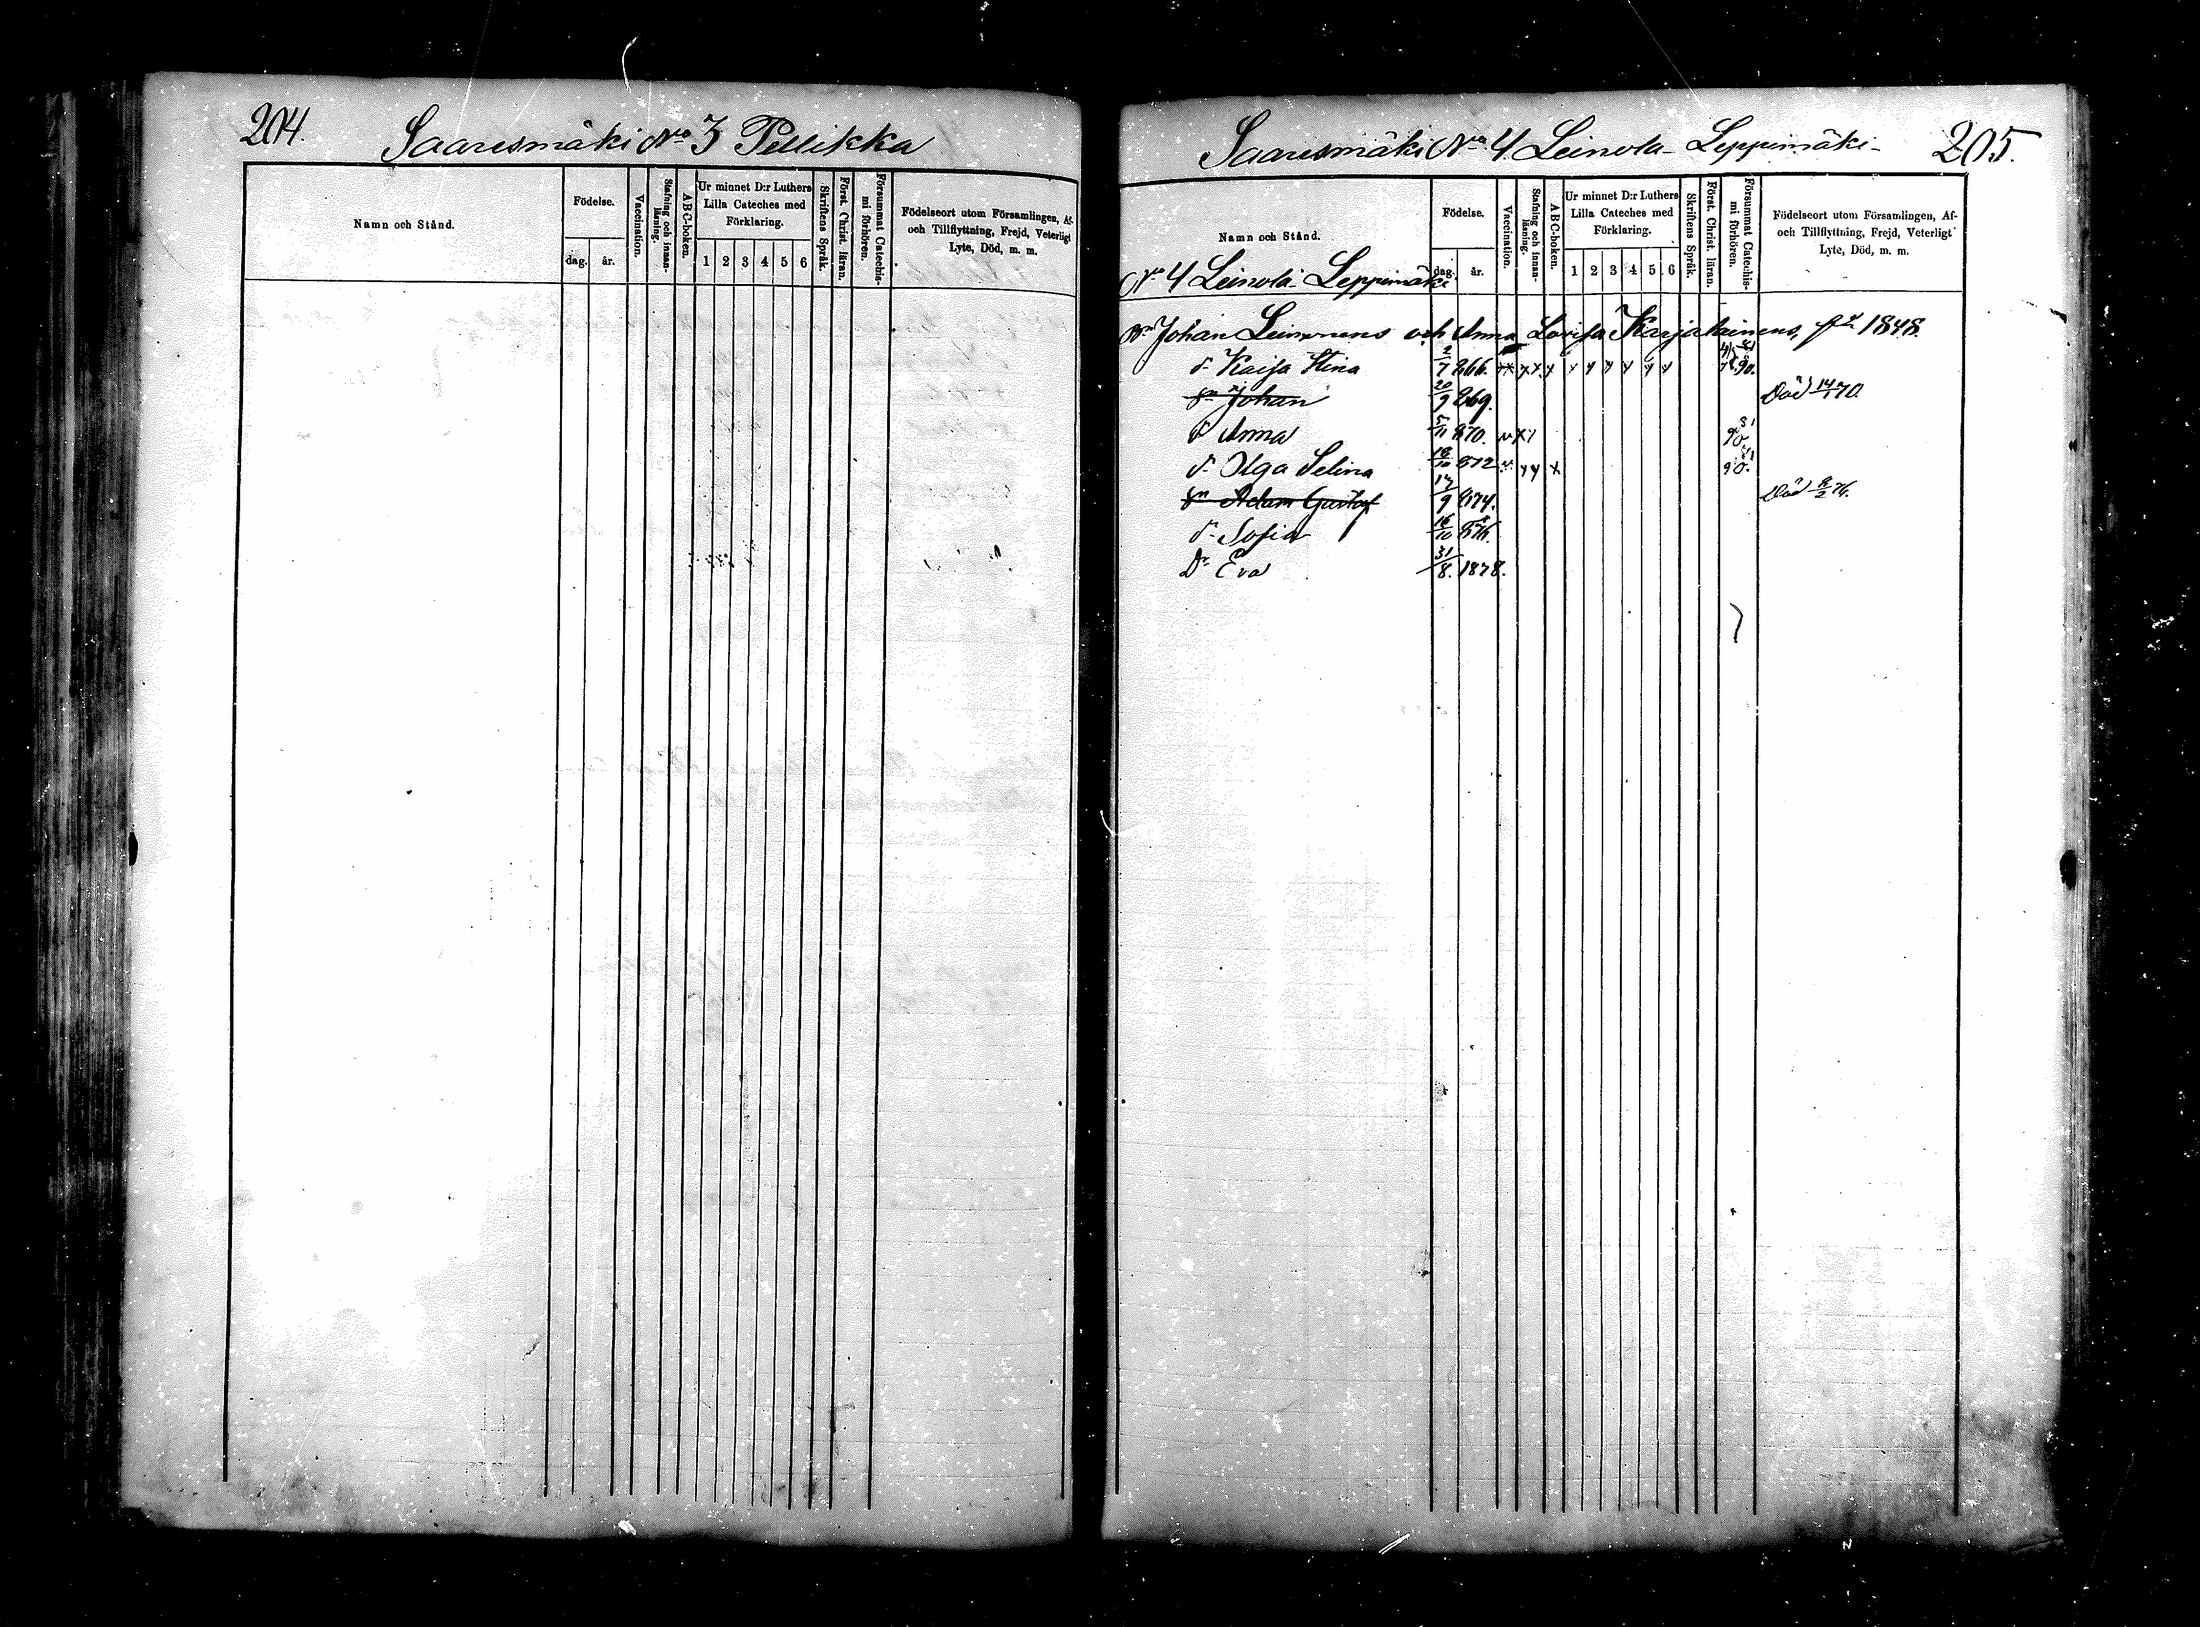 204.
Saaresmäki No 3 Pellikka
Namn och Stånd.
Födelse.
dag. år.
Vaccination.
Stafning och innanläsning.
ABC-boken.
Ur minnet D:r Luthers
Lilla Cateches med
Förklaring.
1 2 3 4 5 6
Skriftens Språk.
Först. Christ. läran.
Försummat Catechismi förhören.
Födelseort utom Församlingen, Af-
och Tillflyttning, Frejd, Veterligt
Lyte, Död, m. m.
Saaresmäki No 4 Leinola Leppimäki 205.
Namn och Stånd.
Födelse.
dag. år.
Vaccination.
Stafning och innanläsning.
ABC-boken.
Ur minnet D:r Luthers
Lilla Cateches med
Förklaring.
1 2 3 4 5 6
Skriftens Språk.
Först. Christ. läran.
Försummat Catechismi förhören.
Födelseort utom Församlingen, Af-
och Tillflyttning, Frejd, Veterligt
Lyte, Död, m. m.
No 4 Leinola Leppimäki
Johan Leinonens och Anna Lovisa Karjalainens, 1848.
d. Kaisa Stina 2/7 866.
sn Johan 20/9 869. Död 14/1 70.
d Anna 5/11 870.
d. Olga Selina 18/10 872
sn Adam Gustaf 17/9 874. Död 8/2 76.
d. Sofia 16/10 876.
Dr Eva 31/8. 1878.